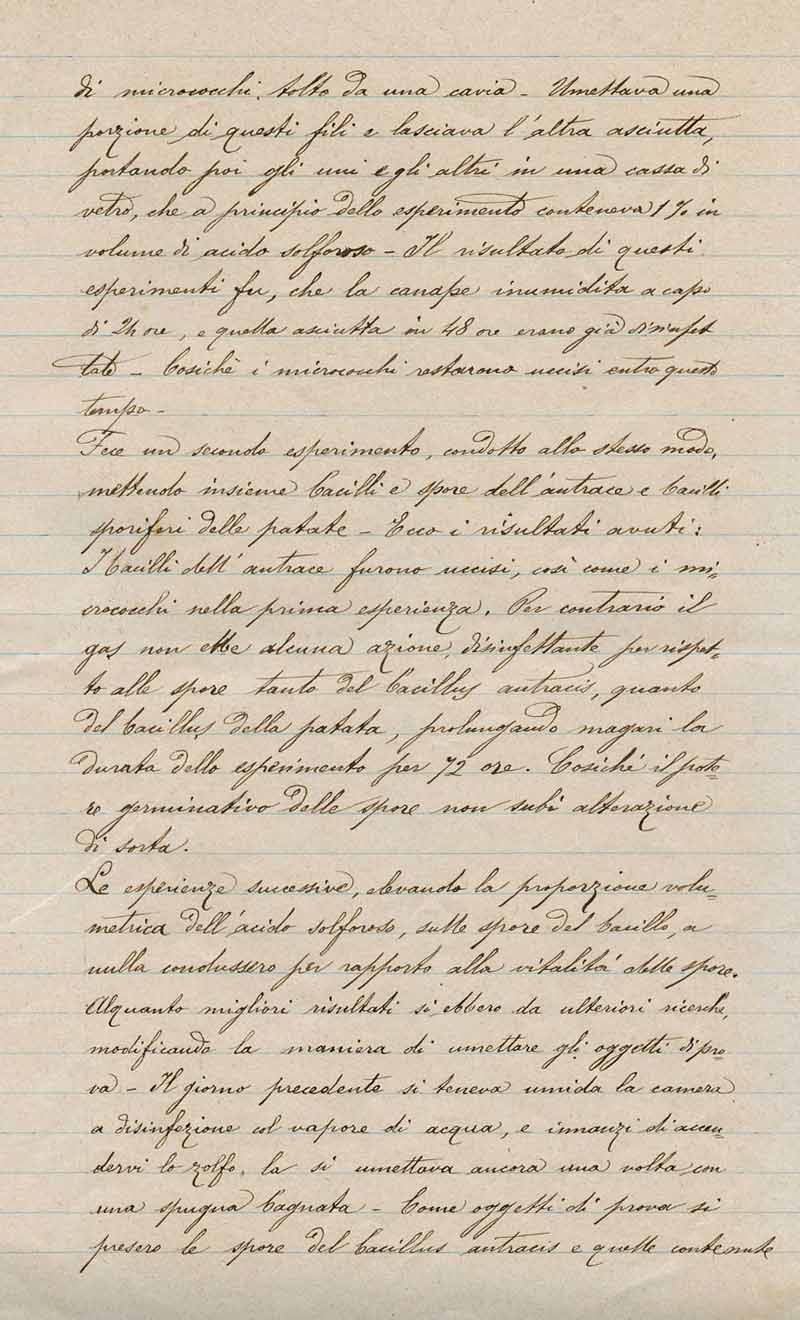 di micrococchi, tolto da una cavia - Umettava una
porzione di questi fili e lasciava l'altra asciutta,
portando poi gli uni e gli altri in una cassa di
vetro, che a principio dello esperimento conteneva 1 % in
volume di acido solforoso - Il risultato di questi
esperimenti fu, che la canape inumidita a capo
di 24 ore, e quella asciutta in 48 ore erano già disinfet
tate - Cosichè i micrococchi restarono uccisi entro questo
tempo -
Fece un secondo esperimento, condotto allo stesso modo,
mettendo insieme bacilli e spore dell'antrace e bacilli
sporiferi delle patate - Ecco i risultati avuti:
I bacilli dell'antrace furono uccisi, così come i mi=
crococchi nella prima esperienza. Per contrario il
gas non ebbe alcuna azione, disinfettante per rispet=
to alle spore tanto del bacillus antracis, quanto
del bacillus della patata, prolungando magari la
durata dello esperimento per 72 ore. Cosichè il pote=
re germinativo delle spore non subì alterazione
di sorta.
Le esperienze successive, elevando la proporzione volu=
metrica dell'acido solforoso, sulle spore del bacillo, a
nulla condussero per rapporto alla vitalità delle spore.
Alquanto migliori risultati si ebbero da ulteriori ricerche,
modificando la maniera di umettare gli oggetti di pro=
va - Il giorno precedente si teneva umida la camera
a disinfezione col vapore di acqua, e innanzi di accen=
dervi lo zolfo, la si umettava ancora una volta con
una spugna bagnata - Come oggetti di prova si
presero le spore del bacillus antracis e quelle contenute